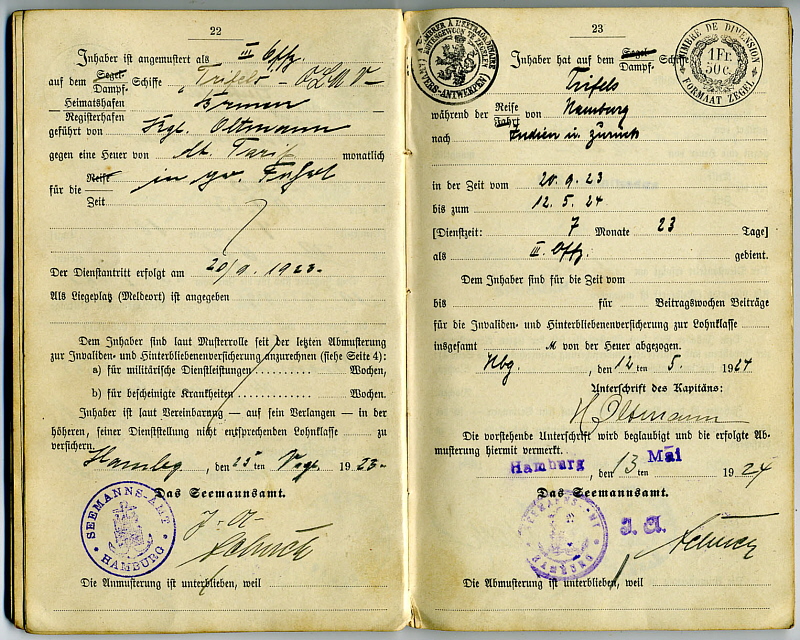 22
Inhaber ist angemustert als III Offz
auf dem Segel- Dampf- Schiffe "Trifels"
Heimatshafen
Registerhafen Bremen
geführt von Kpt. Oltmann
gegen eine Heuer von lt. Tarif monatlich
für die Reise
Zeit in gr. Fahrt
Der Dienstantritt erfolgt am 20/9. 1923.
Als Liegeplatz (Meldeort) ist angegeben
Dem Inhaber sind laut Musterrolle seit der letzten Abmusterung
zur Invaliden- und Hinterbliebenenversicherung anzurechnen (siehe Seite 4):
a) für militärische Dienstleistungen .......... Wochen,
b) für bescheinigte Krankheiten .......... Wochen.
Inhaber ist laut Vereinbarung — auf sein Verlangen — in der
höheren, seiner Dienststellung nicht entsprechenden Lohnklasse zu
versichern.
Hambg, den 25ten 1923.
Das Seemannsamt.
J. A.
SEEMANNS-AMT
HAMBURG
Die Anmusterung ist unterblieben, weil
23
TIMBRE DE DIMENSION
1 Fr.
50 c.
FORMAAT ZEGEL
(ANVERS-ANTWERPEN)
Inhaber hat auf dem Segel- Dampf- Schiffe
Trifels
während der Reise Fahrt von Hamburg
nach Indien u. zurück
in der Zeit vom 20.9.23
bis zum 12.5.24
[Dienstzeit: 7 Monate 23 Tage]
als III. Offz. gedient.
Dem Inhaber sind für die Zeit vom
bis für Beitragswochen Beiträge
für die Invaliden- und Hinterbliebenenversicherung zur Lohnklasse
insgesamt M von der Heuer abgezogen.
Hbg., den 12ten 5. 1924
Unterschrift des Kapitäns:
H Oltmann
Die vorstehende Unterschrift wird beglaubigt und die erfolgte Ab-
musterung hiermit vermerkt.
Hamburg, den 13ten Mai 1924
Das Seemannsamt.
J. A.
Die Abmusterung ist unterblieben, weil